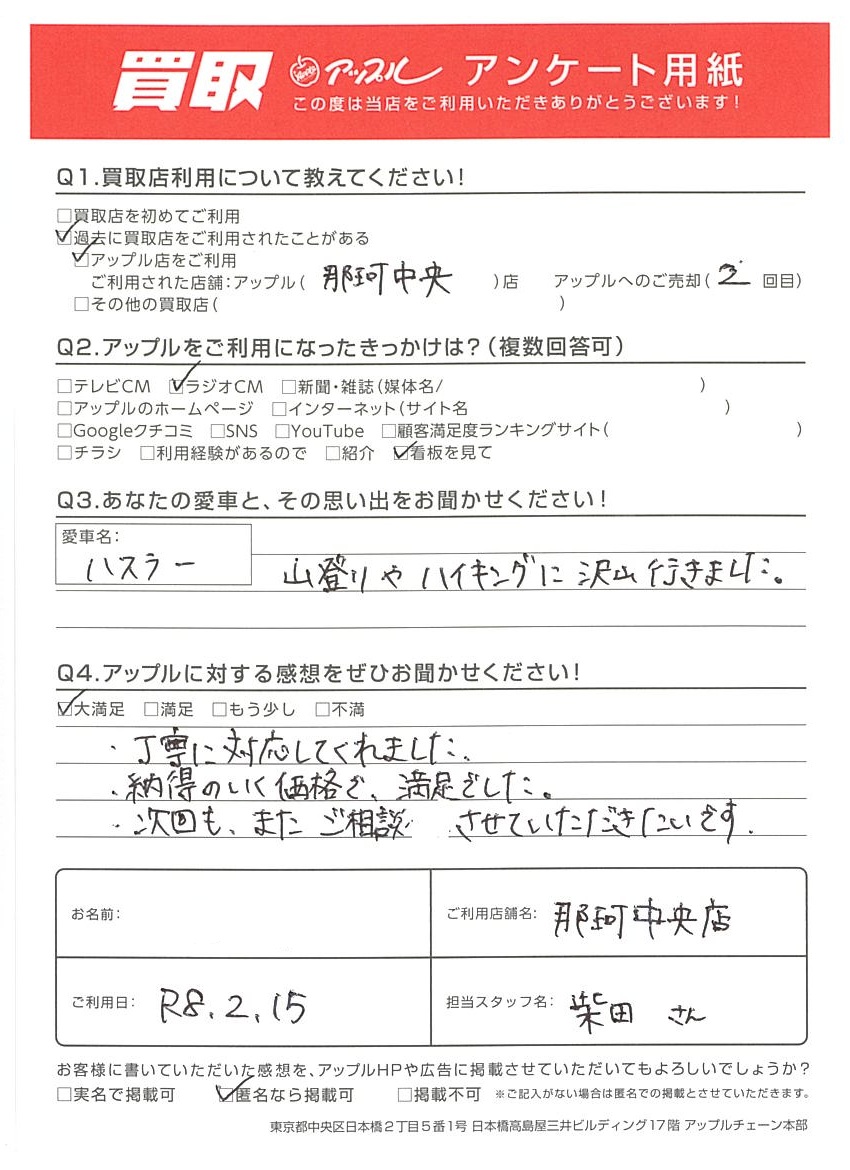 買取 アップル アンケート用紙
この度は当店をご利用いただきありがとうございます!
Q1.買取店利用について教えてください!
□買取店を初めてご利用
☑過去に買取店をご利用されたことがある
☑アップル店をご利用
ご利用された店舗:アップル( 那珂中央 )店 アップルへのご売却( 2 回目)
□その他の買取店( )
Q2.アップルをご利用になったきっかけは?(複数回答可)
□テレビCM ☑ラジオCM □新聞・雑誌(媒体名/ )
□アップルのホームページ □インターネット(サイト名 )
□Googleクチコミ □SNS □YouTube □顧客満足度ランキングサイト( )
□チラシ □利用経験があるので □紹介 ☑看板を見て
Q3.あなたの愛車と、その思い出をお聞かせください!
愛車名:
ハスラー 山登りや ハイキングに 沢山 行きました。
Q4.アップルに対する感想をぜひお聞かせください!
☑大満足 □満足 □もう少し □不満
・丁寧に対応してくれました。
・納得のいく価格で、満足でした。
・次回も、また ご相談 させていただきたいです。
お名前: ご利用店舗名: 那珂中央店
ご利用日: R8.2.15 担当スタッフ名: 柴田 さん
お客様に書いていただいた感想を、アップルHPや広告に掲載させていただいてもよろしいでしょうか?
□実名で掲載可 ☑匿名なら掲載可 □掲載不可 ※ご記入がない場合は匿名での掲載とさせていただきます。
東京都中央区日本橋2丁目5番1号 日本橋高島屋三井ビルディング17階 アップルチェーン本部